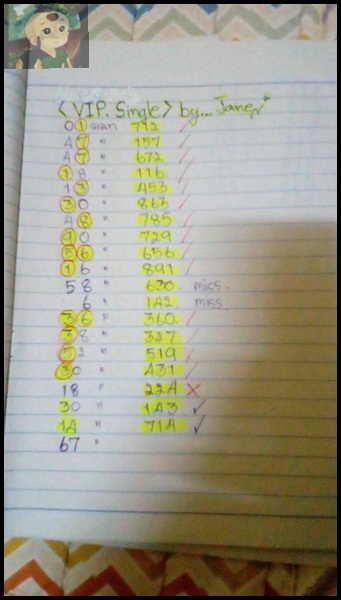 < VIP. Single > by... Janey
01 " 792 /
47 " 157 /
47 " 672 /
18 " 116 /
13 " 453 /
30 " 863 /
48 " 785 /
90 " 729 /
56 " 656 /
16 " 891 /
58 " 630. miss.
6 " 142 miss.
36 " 360 /
38 " 327 /
52 " 519 /
30 " 431 /
18 " 224 ×
30 " 143 ✓
14 " 714 ✓
67 "